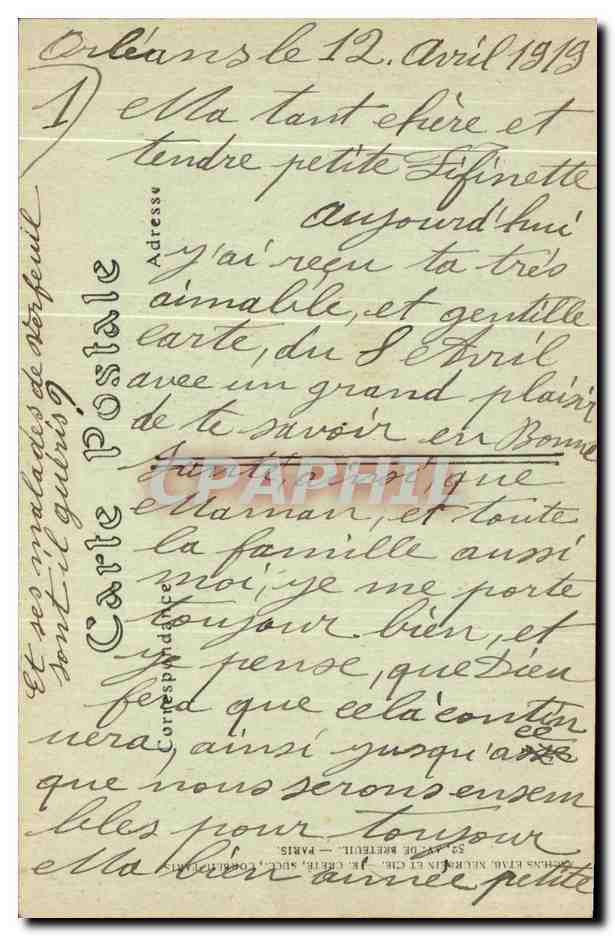 Orléans le 12. Avril 1919
1)
Ma tant chère et
tendre petite Fifinette
aujourd'hui
j'ai reçu ta très
aimable, et gentille
carte, du 8 Avril
avec un grand plaisir
de te savoir en Bonne
Santé, ainsi, que
Maman, et toute
la famille aussi
moi, je me porte
toujour bien, et
je pense, que Dieu
fera que celà contin
uera, ainsi jusqu'a ce
que nous serons ensem
bles pour toujour
Ma bien aimée petite
Et ses malades de Verfeuil
sont il guéris?
Carte Postale
Correspondance
Adresse
CPAPHIL
ANCIENS ETAB. NEURDEIN ET CIE. — IMP. CRÉTÉ, SUCC., CORBEIL-PARIS.
52, AV. DE BRETEUIL. — PARIS.